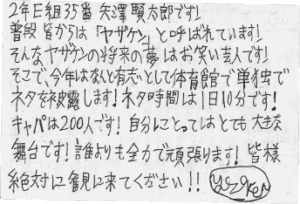 2年E組35番 矢澤賢太郎です!
普段皆からは「ヤザケン」と呼ばれています!
そんなヤザケンの将来の夢はお笑い芸人です!
そこで、今年はなんと有志として体育館で単独で
ネタを披露します!ネタ時間は1日10分です!
キャパは200人です!自分にとってはとても大きな
舞台です!誰よりも全力で頑張ります!皆様
絶対に観に来てください!!